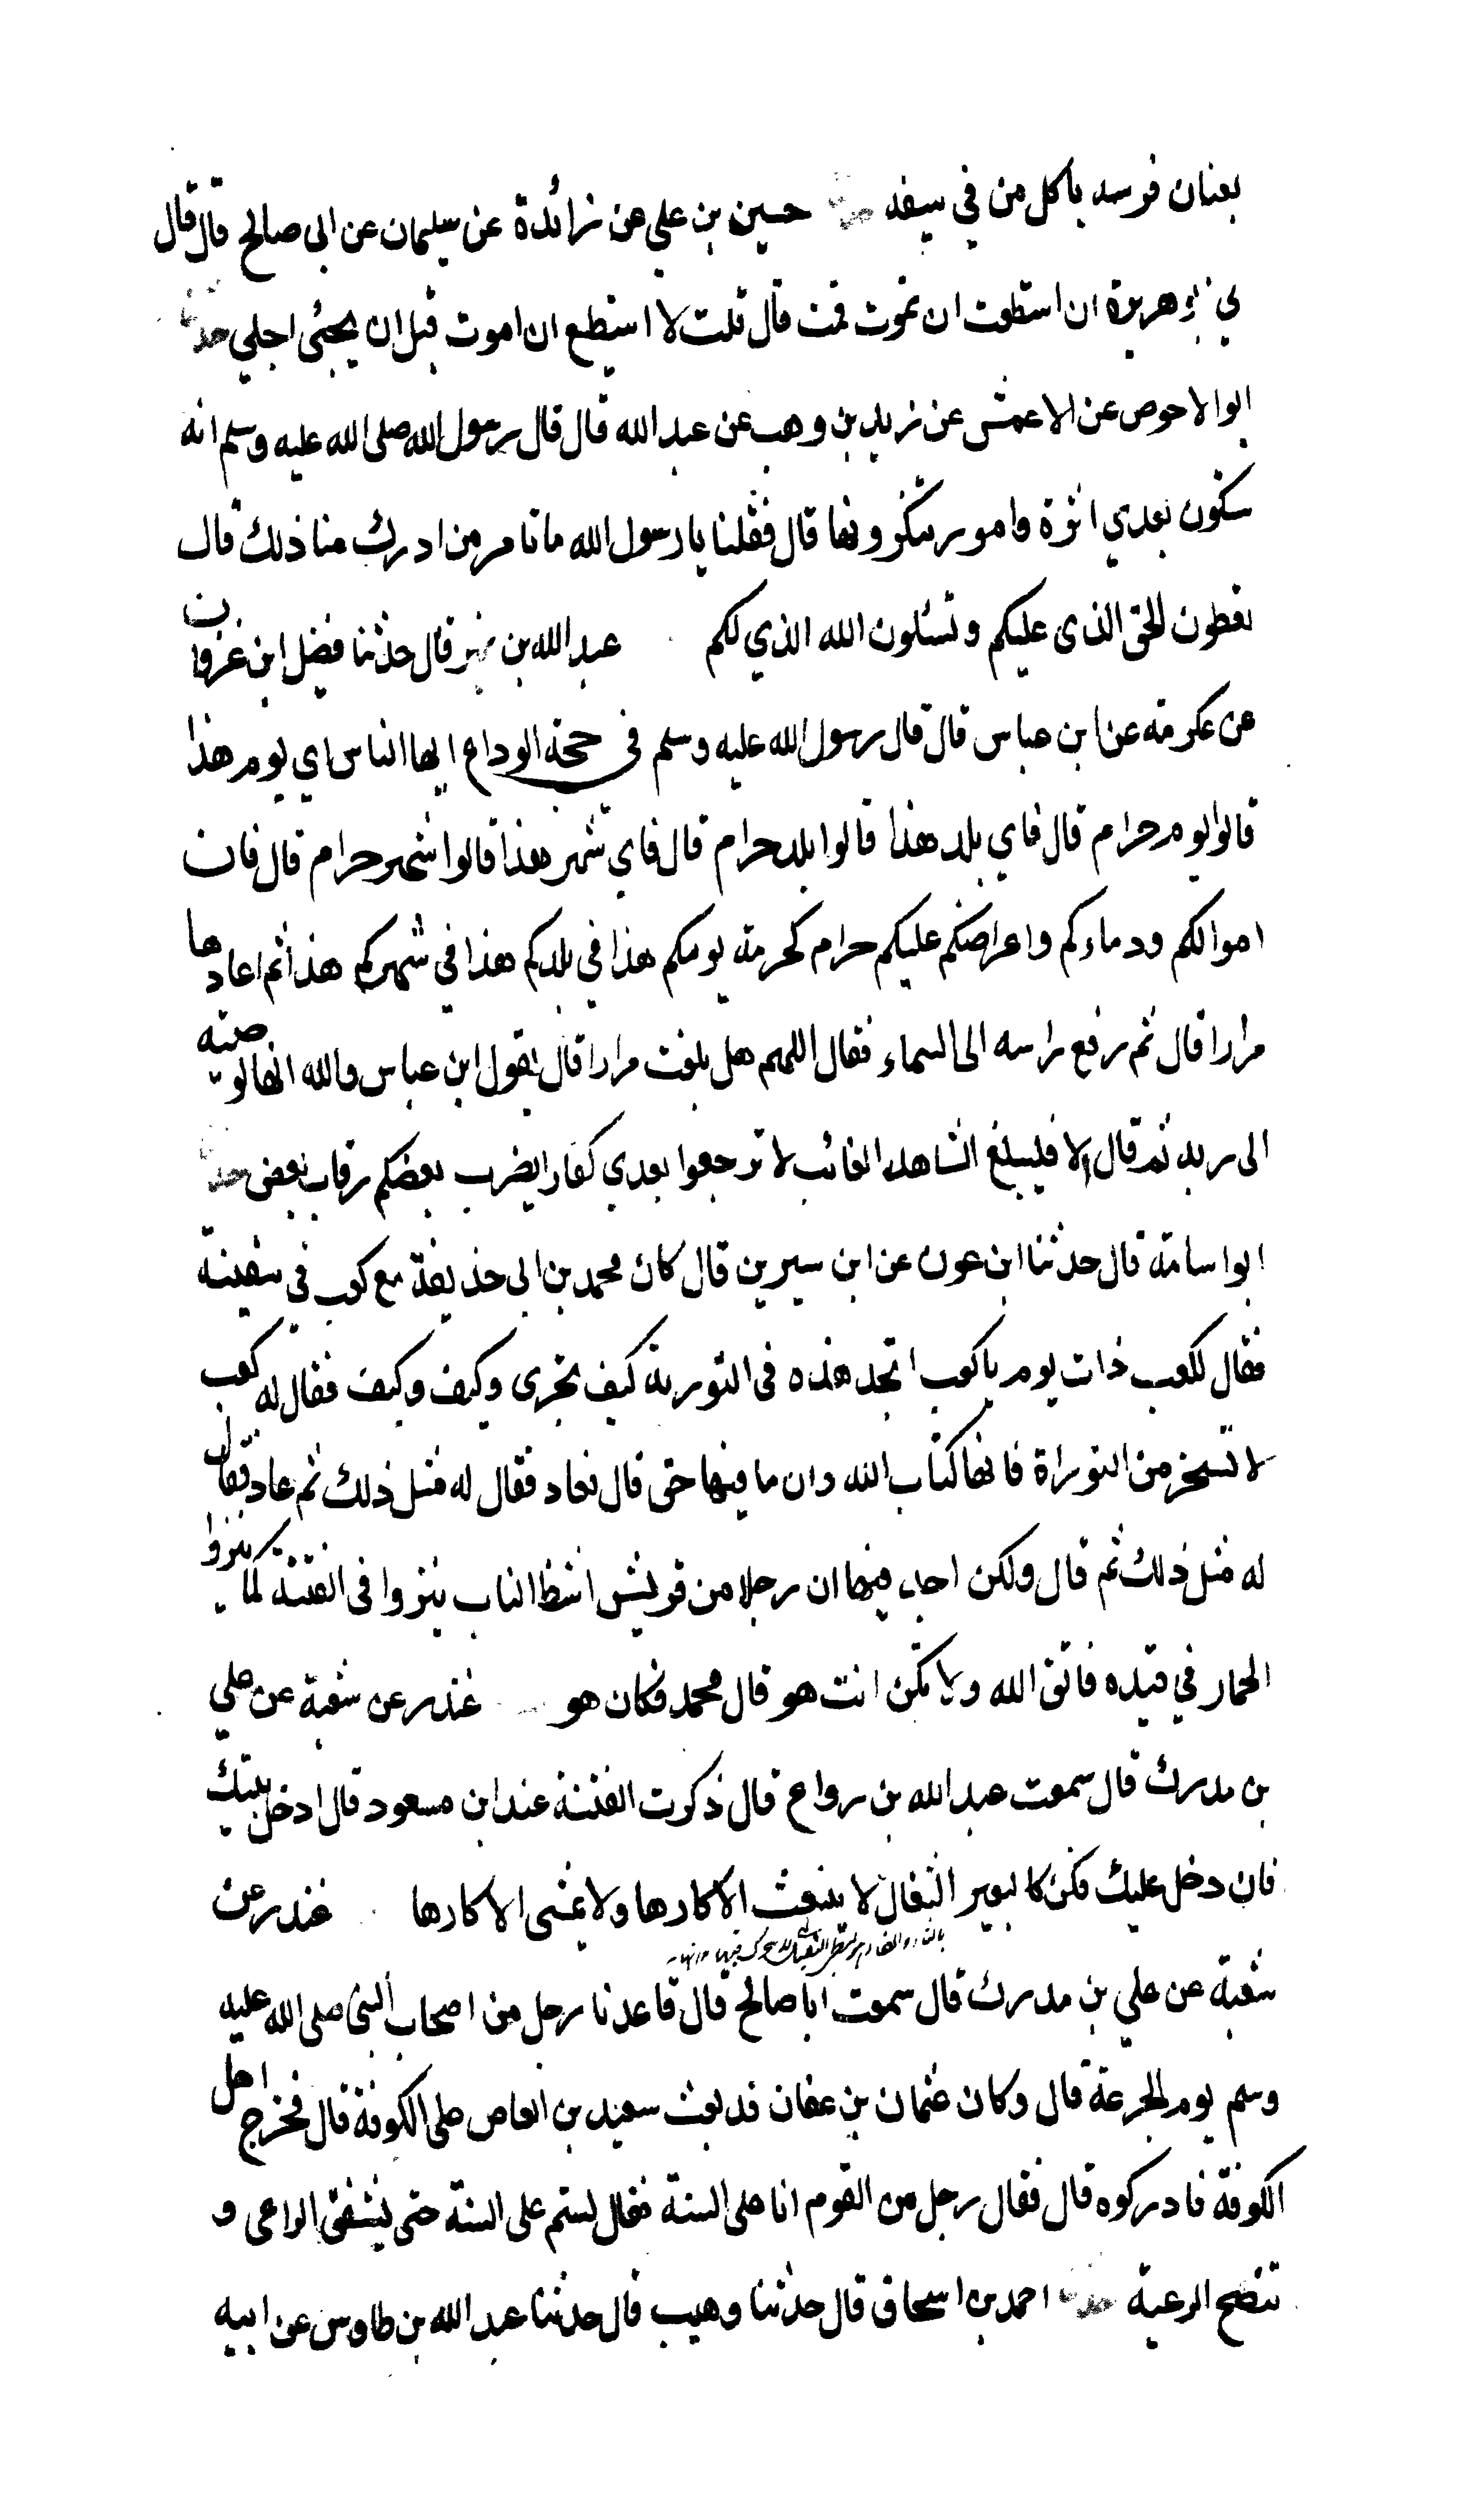 بعنان فرسه ياكل من في سيفه حدثنا حسين بن علي عن زائدة عن سليمان عن ابى صالح قال قال
لي ابو هريرة ان استطعت ان تموت فمت قال قلت لا استطيع ان اموت قبل ان يجئى اجلي حدثنا
ابو الاحوص عن الاعمش عن زيد بن وهب عن عبد الله قال قال رسول الله صلى الله عليه وسلم انه
ستكون بعدي اثرة وامور تنكرونها قال فقلنا يا رسول الله ما تامر من ادرك منا ذلك قال
تعطون الحق الذى عليكم وتسئلون الله الذي لكم عبد الله بن نمير قال حدثنا فضيل ابن غزوان
عن عكرمة عن ابن عباس قال قال رسول الله عليه وسلم فى حجة الوداع ايها الناس اي يوم هذا
قالوا يوم حرام قال فاي بلد هذا قالوا بلد حرام قال فاي شهر هذا قالوا شهر حرام قال فان
اموالكم ودماءكم واعراضكم عليكم حرام كحرمة يومكم هذا في بلدكم هذا في شهركم هذا ثم اعادها
مرارا قال ثم رفع راسه الى السماء فقال اللهم هل بلغت مرارا قال يقول ابن عباس والله انها لوصيته
الى ربه ثم قال الا فليبلغ الشاهد الغائب لا ترجعوا بعدي كفارا يضرب بعضكم رقاب بعض حدثنا
ابو اسامة قال حدثنا ابن عون عن ابن سيرين قال كان محمد بن ابى حذيفة مع كعب في سفينة
فقال لكعب ذات يوم يا كعب اتجد هذه فى التورية كيف تجرى وكيف وكيف فقال له كعب
لا تسخر من التوراة فانها كتاب الله وان ما فيها حق قال فعاد فقال له مثل ذلك ثم عاد فقال
له مثل ذلك ثم قال ولكن اجد فيها ان رجلا من قريش اشط الناب ينزوا فى الفتنة كما ينزوا
الحمار في قيده فاتق الله ولا تكن انت هو قال محمد فكان هو غندر عن شعبة عن علي
بن مدرك قال سمعت عبد الله بن رواع قال ذكرت الفتنة عند ابن مسعود قال ادخل بيتك
فان دخل عليك فكن كالبعير الثفال لا ينبعث الا كارها ولا يمشى الا كارها غندر عن
شعبة عن علي بن مدرك قال سمعت ابا صالح قال قاعدنا رجل من اصحاب النبى صلى الله عليه
وسلم يوم الجرعة قال وكان عثمان بن عفان قد بعث سعيد بن العاص على الكوفة قال فخرج اهل
الكوفة فادركوه قال فقال رجل من القوم انا على السنة فقال لستم على السنة حتى يشفق الراعى و
تنصح الرعية حدثنا احمد بن اسحاق قال حدثنا وهيب قال حدثنا عبد الله بن طاوس عن ابيه